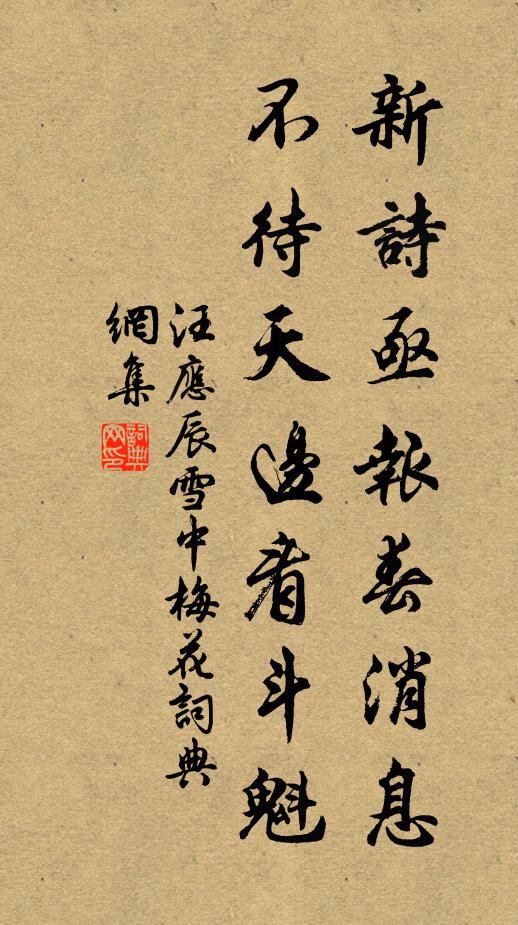 新詩亟報春消息
不待天邊看斗魁
汪應辰雪中梅花詞典
網集
詞典網印